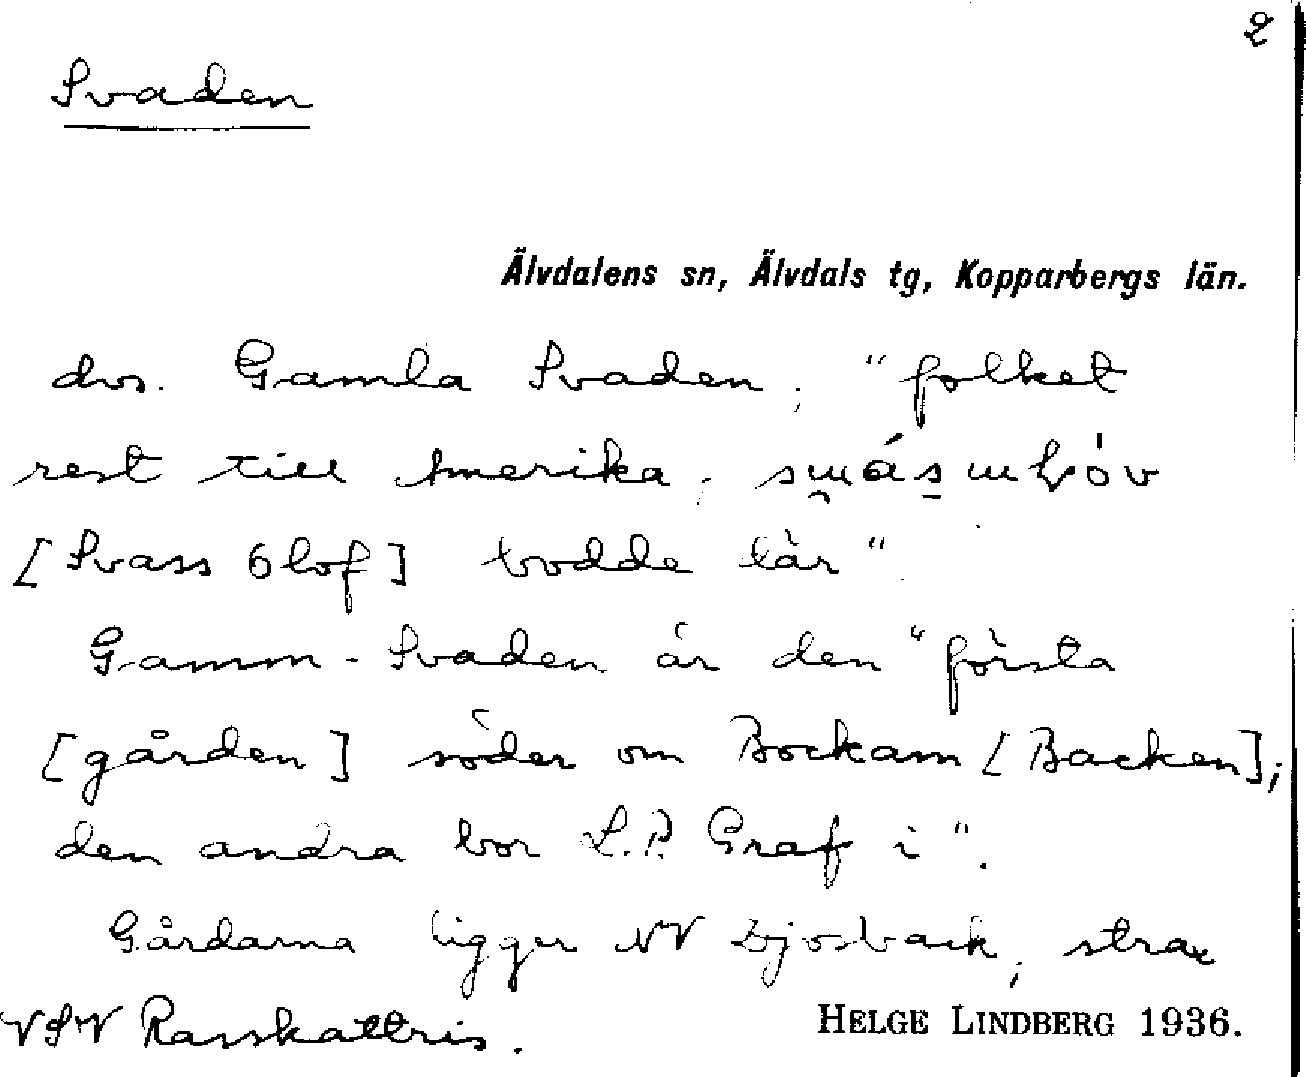 2
Svaden
Älvdalens sn, Älvdals tg, Kopparbergs län.
dvs. Gamla Svaden; "folket
rest till Amerika;
[Svass Olof] bodde där"
Gamm-Svaden är den "första
[gården] söder om Bockam [Backen];
den andra bor L.P. Graf i".
Gårdarna ligger NV, strax
VSV Rasskattris.
HELGE LINDBERG 1936.